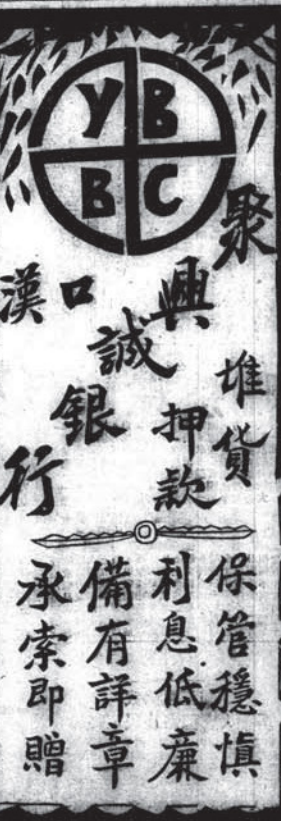 YB
BC
聚興誠銀行
漢口
堆貨押款
保管穩慎
利息低廉
備有詳章
承索即贈